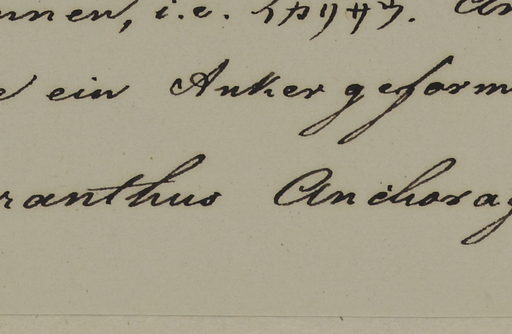 nnen, i.e. An
e ein Anker geform
ranthus Anchorag